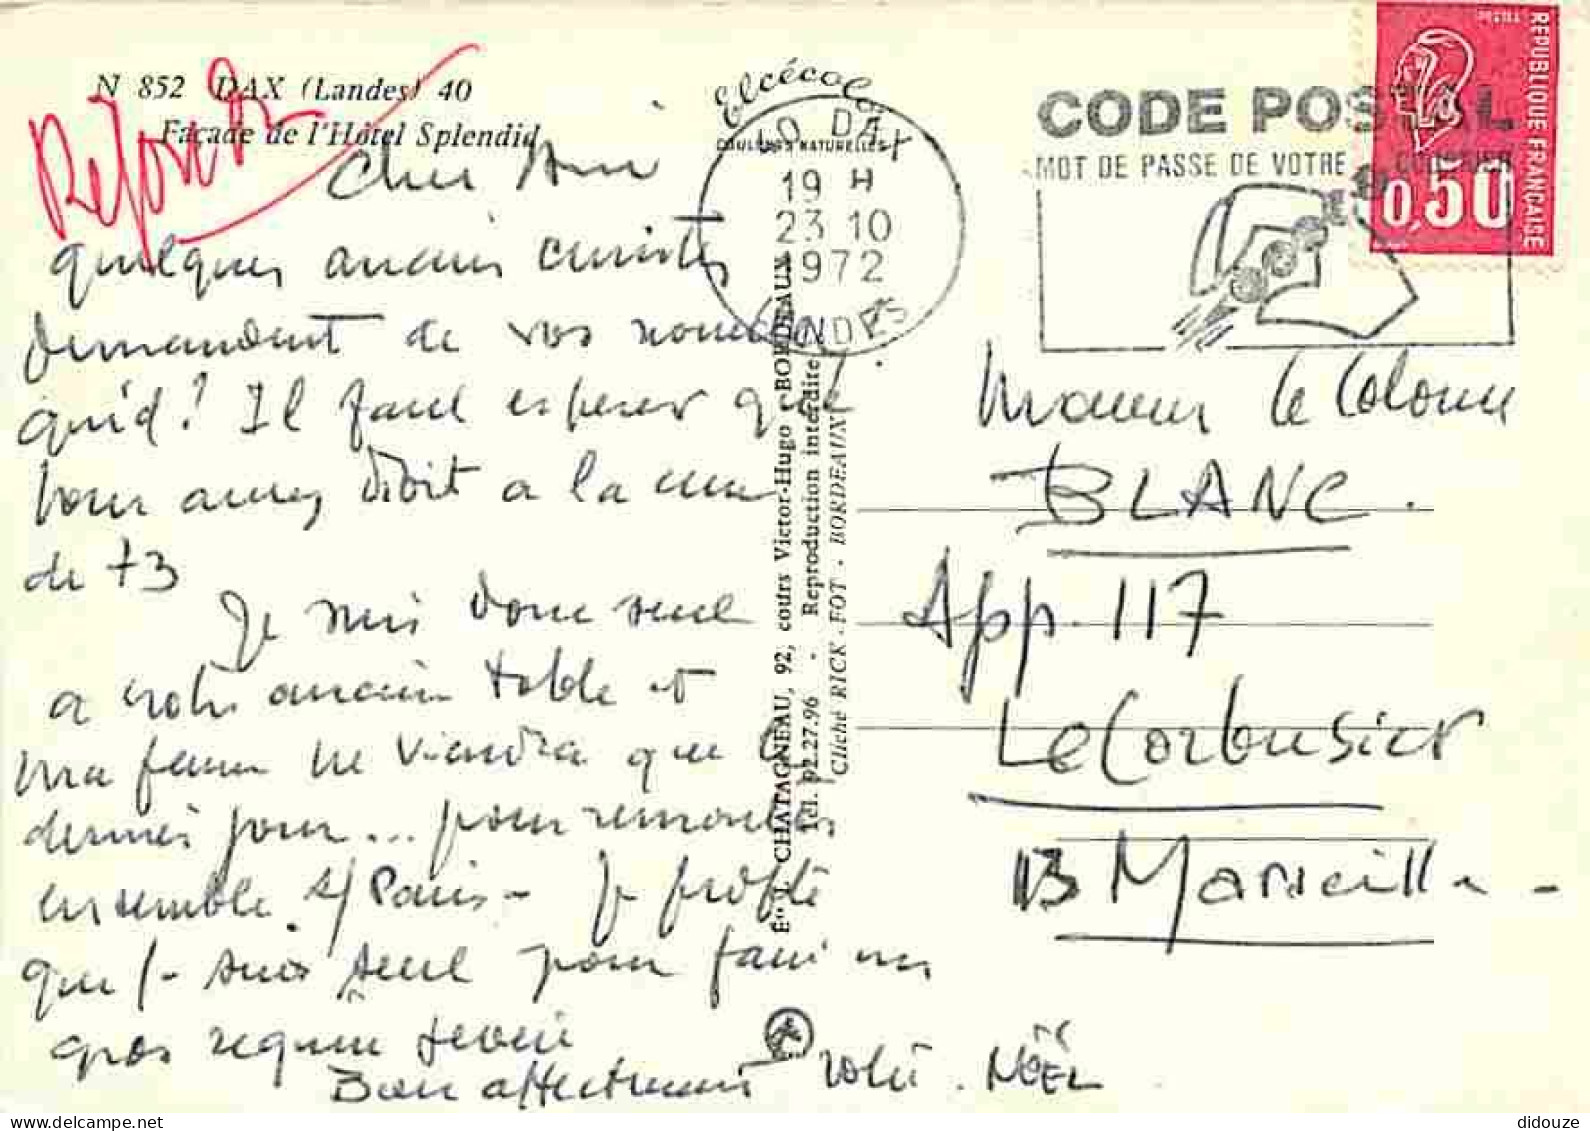 N 852 DAX (Landes) 40
Façade de l'Hôtel Splendid
Répondu
Elcécolor
COULEURS NATURELLES
40 DAX
19 H
23-10
1972
LANDES
CODE POSTAL
MOT DE PASSE DE VOTRE COURRIER
REPUBLIQUE FRANÇAISE
0,50
Cher Ami
quelques anciens curistes
demandent de vos nouvelles
quid? Il faut espérer que
vous aurez droit a la cure
de 73
Je suis donc seul
a votre ancienne table et
ma femme ne viendra que les
derniers jours... pour remonter
ensemble s/ Paris - Je profite
que je suis seul pour faire un
gros régime sévère
Bien affectueusement votre. NOËL
Éts J. CHATAGNEAU, 92, cours Victor-Hugo BORDEAUX
Tél. 92.27.96 - Reproduction interdite
Cliché RICK . FOT . BORDEAUX
Monsieur le Colonel
BLANC.
App. 117
Le Corbusier
13 Marseille -
didouze